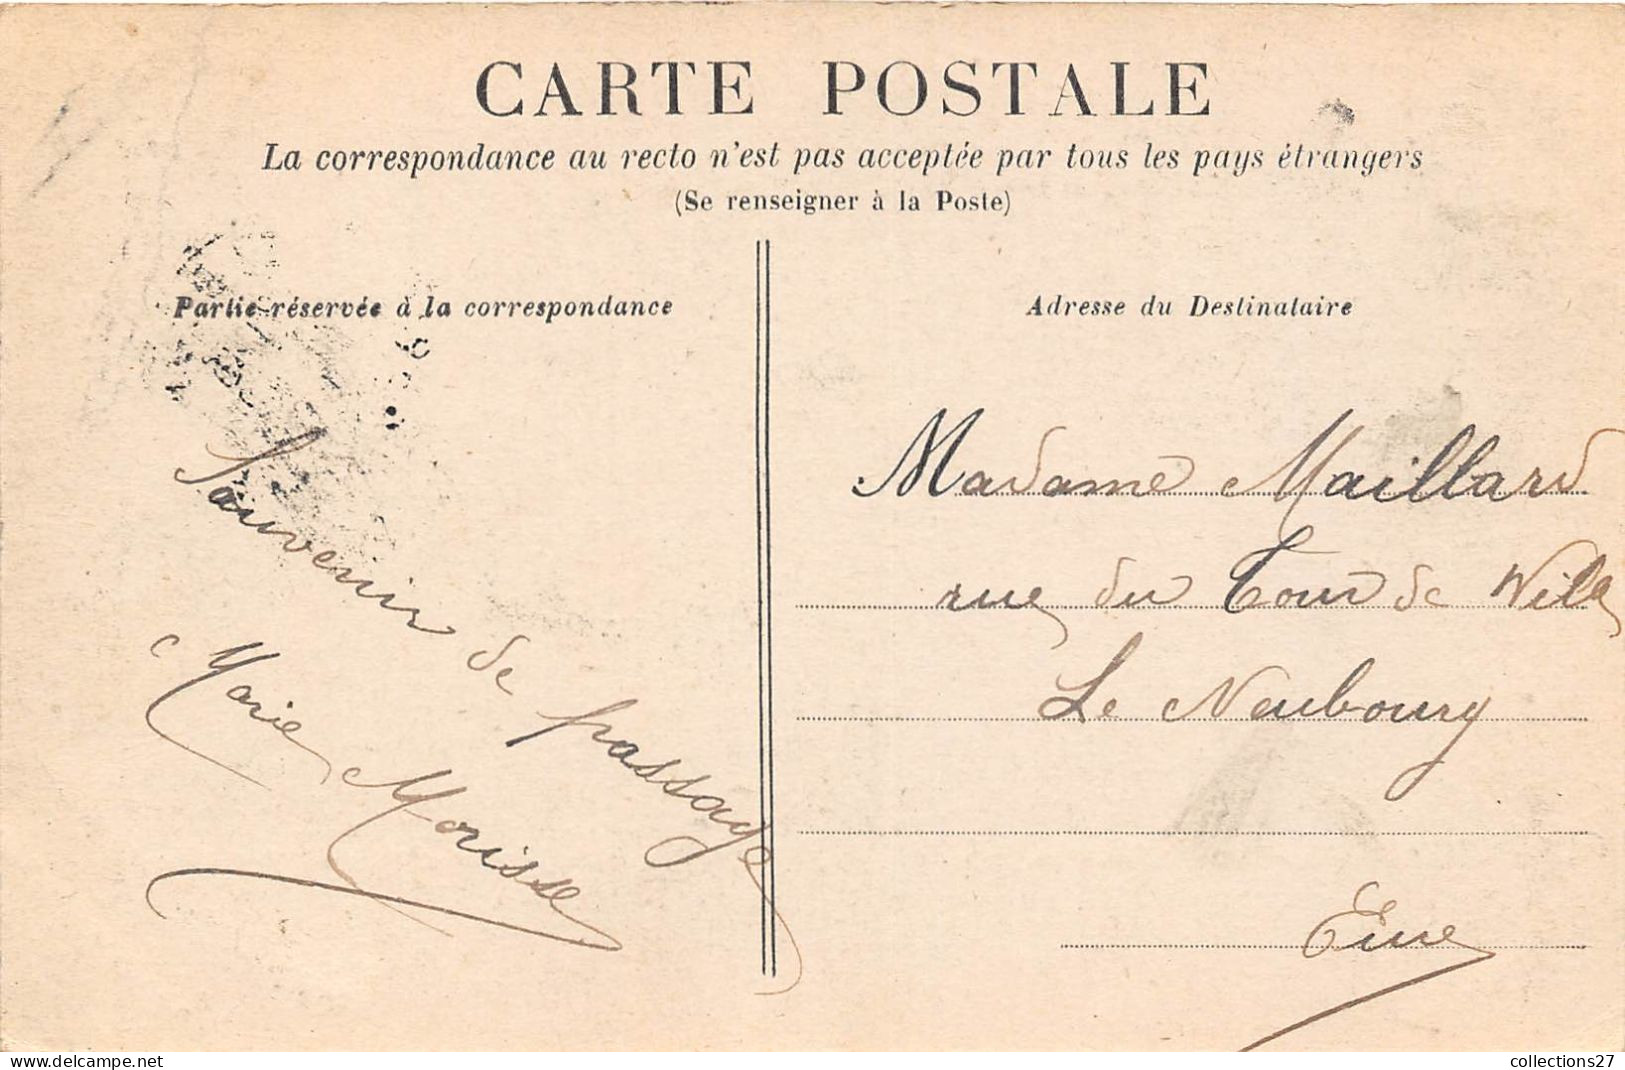 CARTE POSTALE
La correspondance au recto n'est pas acceptée par tous les pays étrangers
(Se renseigner à la Poste)
Partie réservée à la correspondance
Souvenir de passage
Marie Morisse
Adresse du Destinataire
Madame Maillard
rue du Tour de Ville
Le Neubourg
Eure
collections27